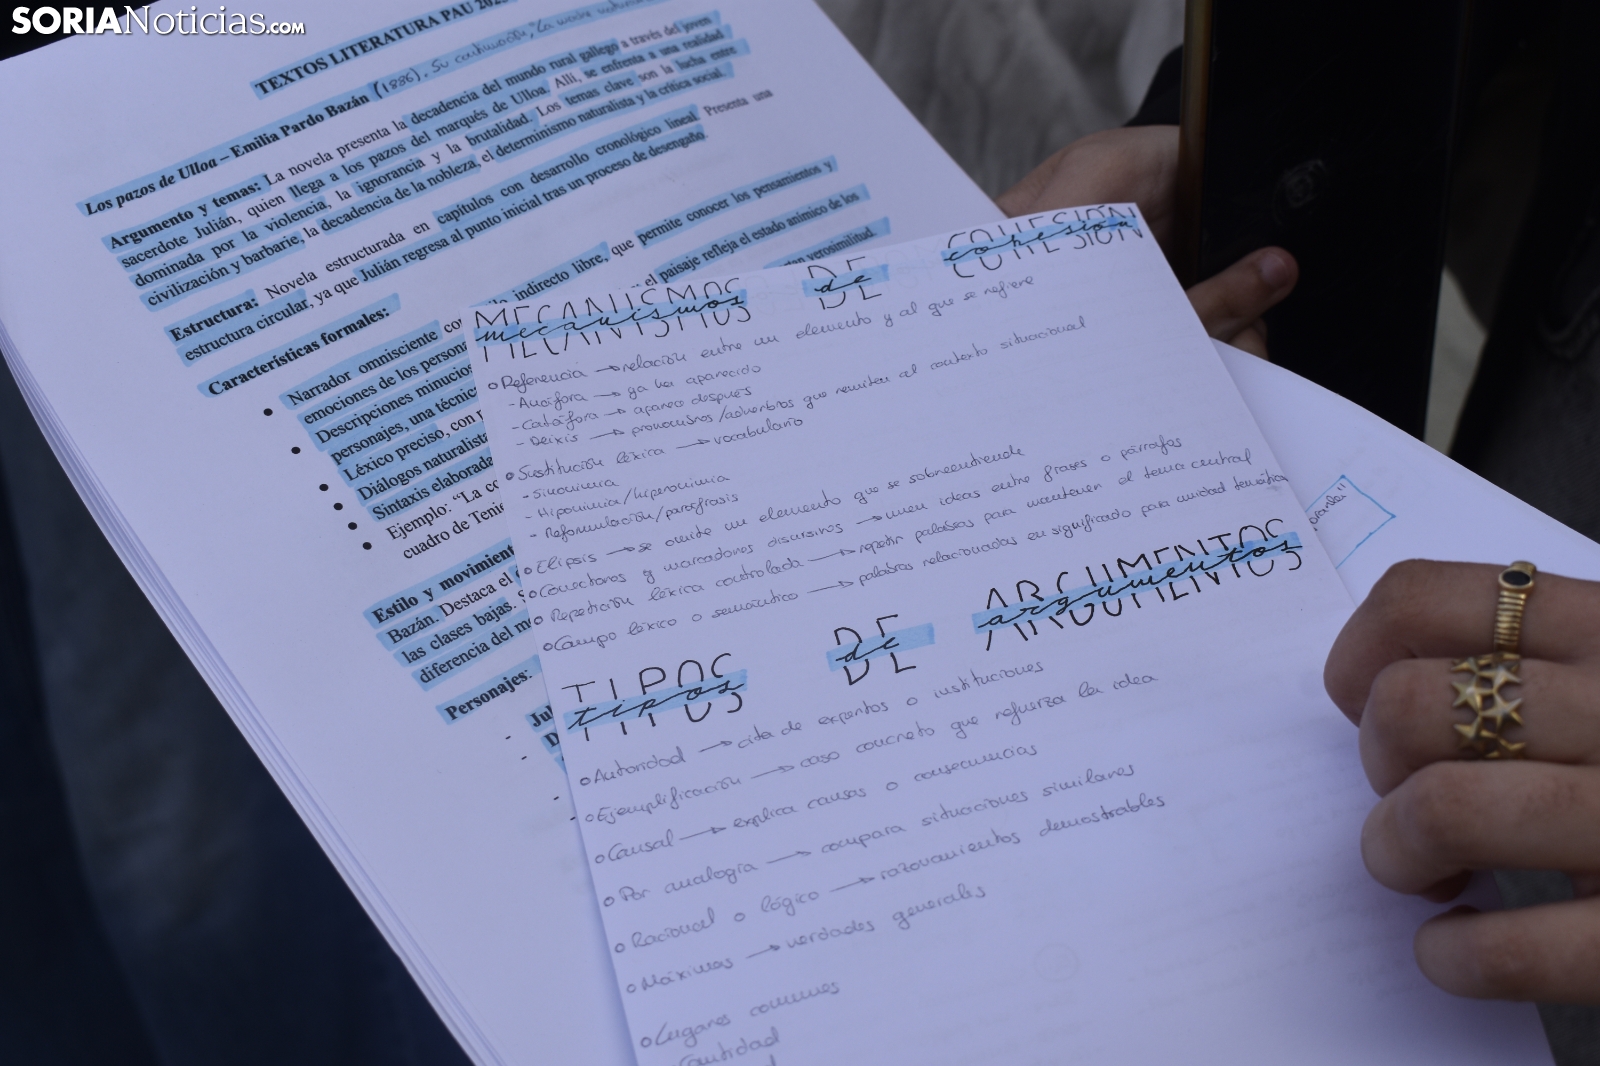 SORIANoticias.com
TEXTOS LITERATURA PAU 202
Los pazos de Ulloa – Emilia Pardo Bazán (1886). Su continuación, "La madre
Argumento y temas: La novela presenta la decadencia del mundo rural gallego a través del joven
sacerdote Julián, quien llega a los pazos del marqués de Ulloa. Allí, se enfrenta a una realidad
dominada por la violencia, la ignorancia y la brutalidad. Los temas clave son la lucha entre
civilización y barbarie, la decadencia de la nobleza, el determinismo naturalista y la crítica social.
Estructura: Novela estructurada en capítulos con desarrollo cronológico lineal. Presenta una
estructura circular, ya que Julián regresa al punto inicial tras un proceso de desengaño.
Características formales:
• Narrador omnisciente indirecto libre, que permite conocer los pensamientos y
emociones de los
• Descripciones el paisaje refleja el estado anímico de los
personajes, una
• Léxico preciso, con verosimilitud.
• Diálogos naturalistas
• Sintaxis elaborada
• Ejemplo: "La
cuadro de
Estilo y
Bazán. Destaca el
las clases bajas.
diferencia del
Personajes:
MECANISMOS DE COHESIÓN
mecanismos de cohesión
o Referencia → relación entre un elemento y al que se refiere
- Anáfora → ya ha aparecido
- Catáfora → aparece después
- Deixis → pronombres/adverbios que remiten al contexto situacional
o Sustitución léxica → vocabulario
- Sinonimia
- Hiponimia/hiperonimia
- Reformulación/paráfrasis
o Elipsis → se omite un elemento que se sobreentiende
o Conectores y marcadores discursivos → unen ideas entre frases o párrafos
o Repetición léxica controlada → repetir palabras para mantener el tema central
o Campo léxico o semántico → palabras relacionadas en significado para unidad temática
TIPOS DE ARGUMENTOS
tipos de argumentos
o Autoridad → cita de expertos o instituciones
o Ejemplificación → caso concreto que refuerza la idea
o Causal → explica causas o consecuencias
o Por analogía → compara situaciones similares
o Racional o lógico → razonamientos demostrables
o Máximas → verdades generales
o Lugares comunes
Cantidad